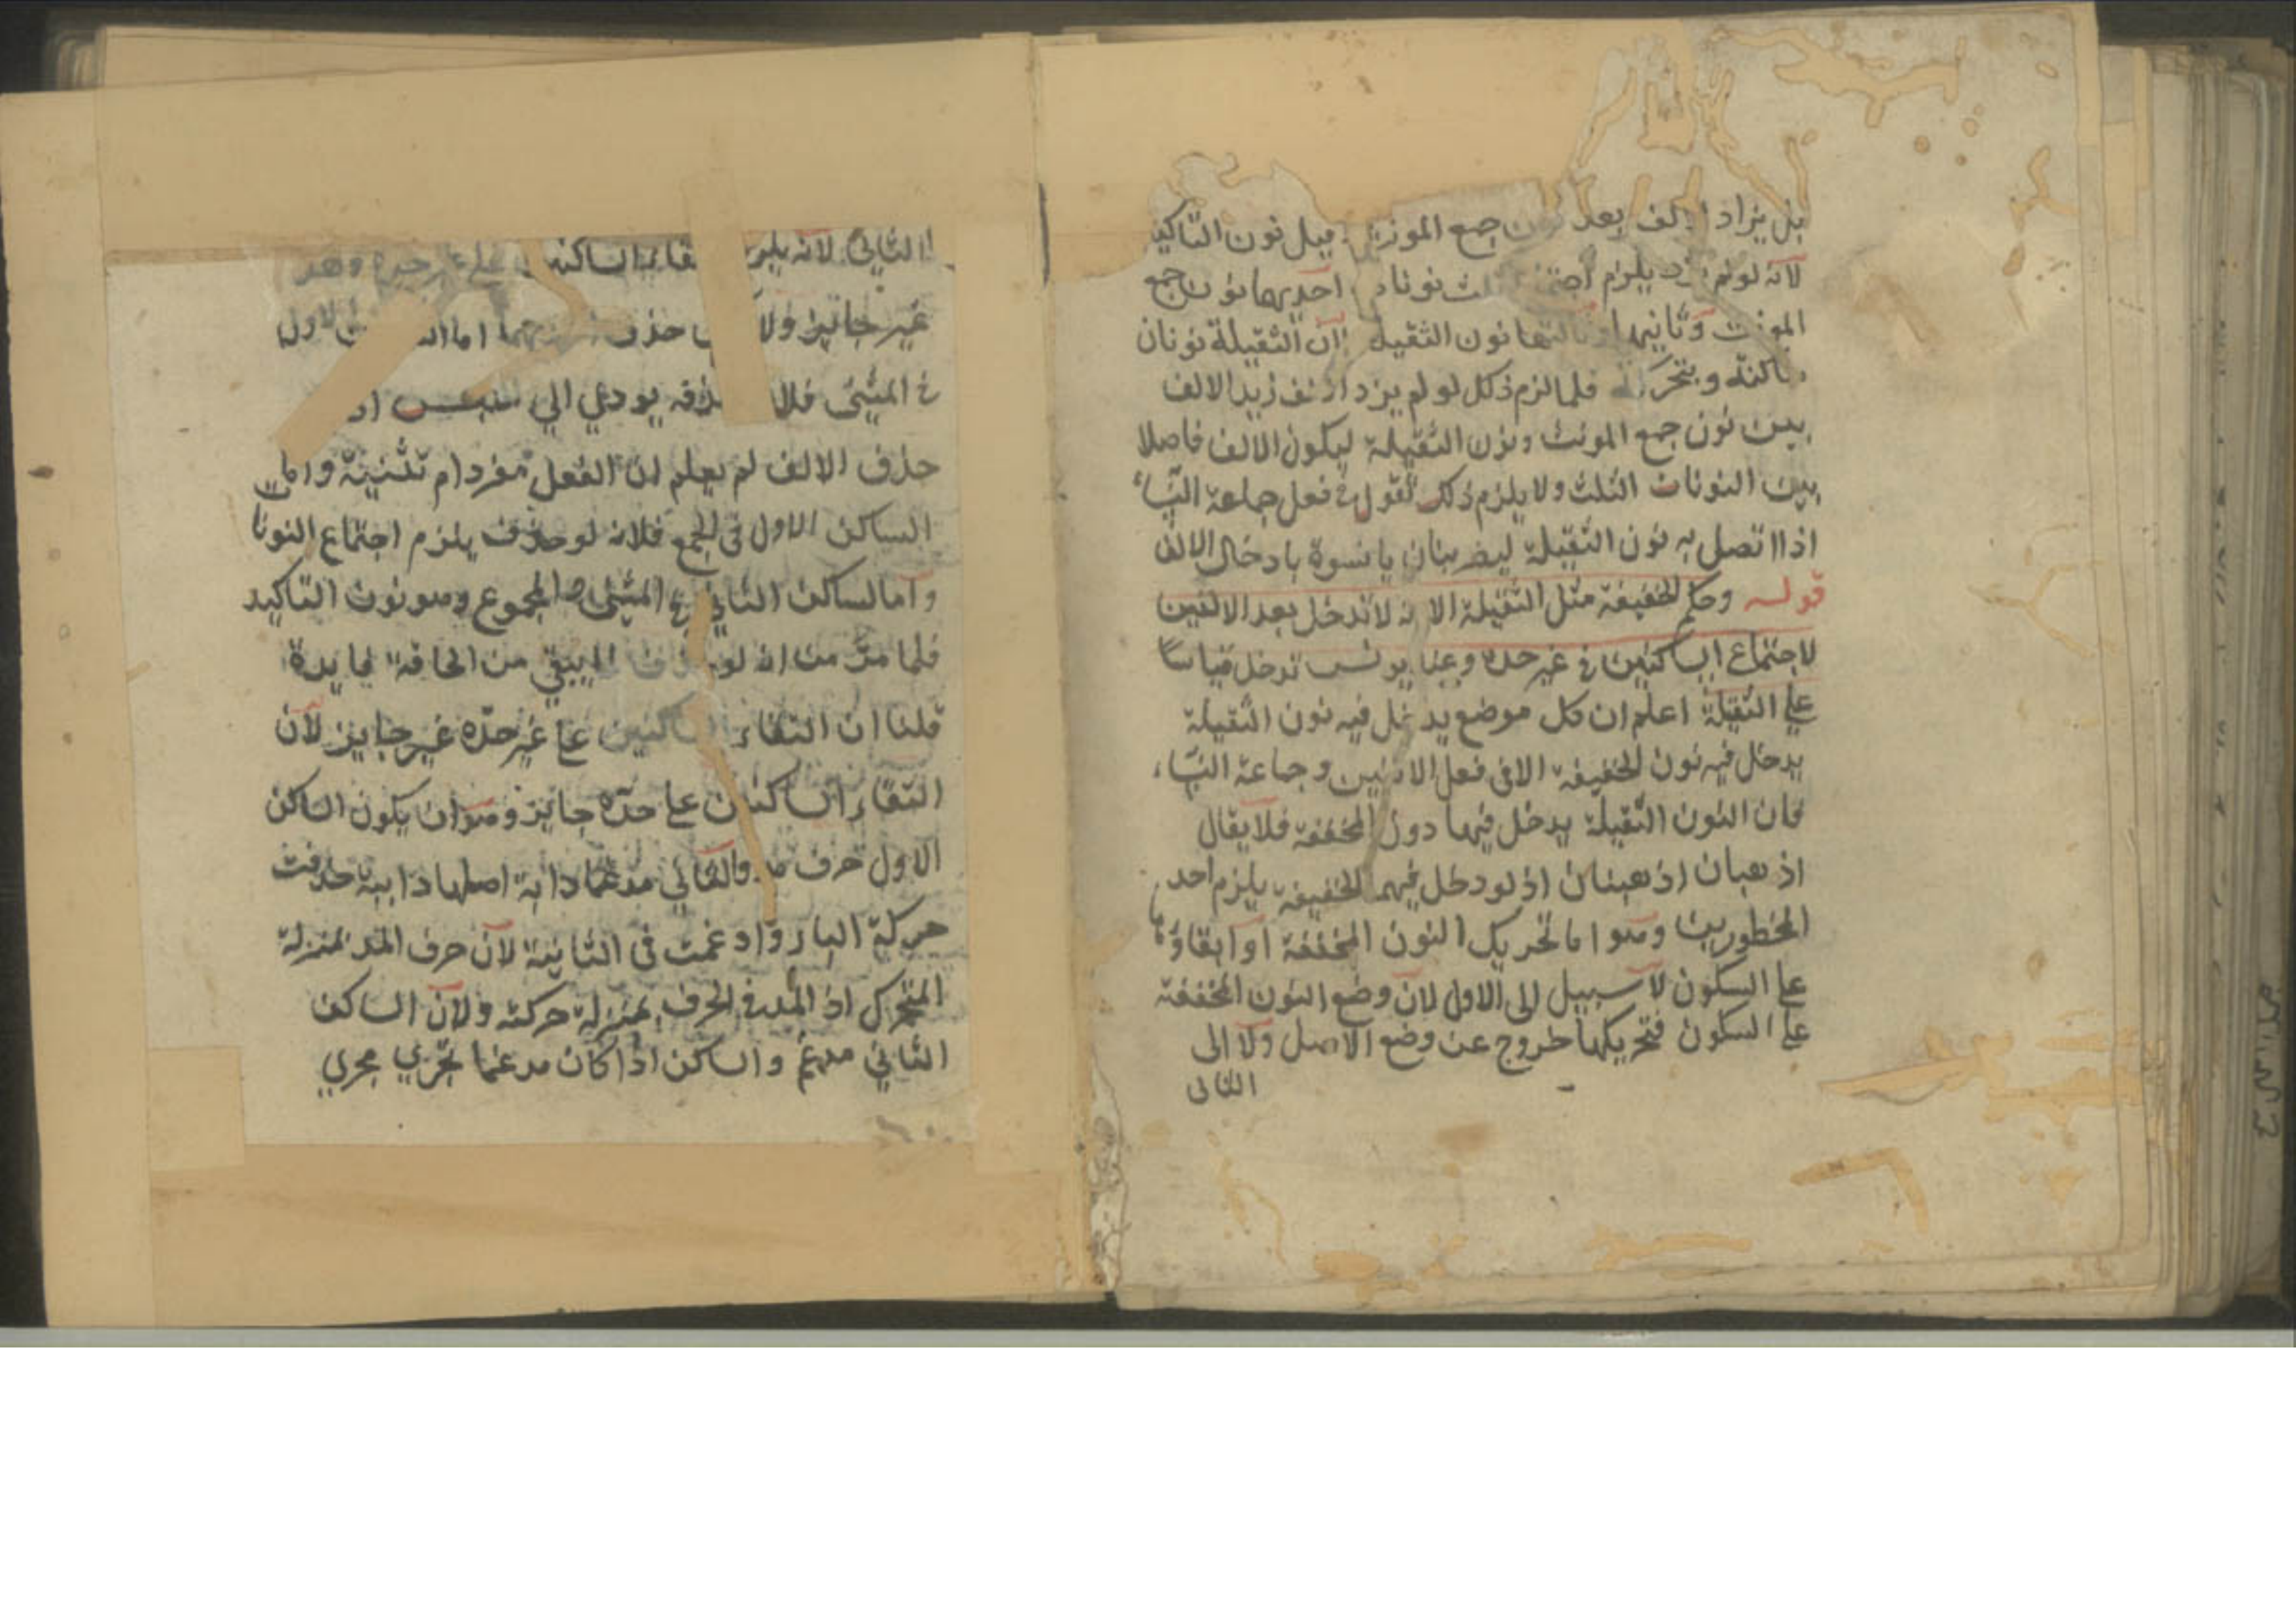 بل يزاد الالف بعد نون جمع المونث قبل نون التاكيد
لانه لو لم يزد يلزم اجتماع ثلث نونات احديها نون جمع
المونث وثانيها وثالثها نون الثقيلة لان الثقيلة نونان
ساكنة ومتحركة فلما لزم ذلك لو لم يزد الالف زيد الالف
بين نون جمع المونث ونون الثقيلة ليكون الالف فاصلا
بين النونات الثلث ولا يلزم ذلك تقول في فعل جماعة النساء
اذا اتصل به نون الثقيلة ليضربنان يا نسوة بادخال الالف
قوله وحكم الخفيفة مثل الثقيلة الا انه لا تدخل بعد الالفين
لاجتماع الساكنين في غير حده وعند يونس تدخل قياسا
على الثقيلة اعلم ان كل موضع يدخل فيه نون الثقيلة
يدخل فيه نون الخفيفة الا في فعل الاثنين وجماعة النساء
فان النون الثقيلة يدخل فيها دون المخففة فلا يقال
اذهبان اذهبنان اذ لو دخل فيهما الخفيفة يلزم احد
المخطورين وهو اما تحريك النون المخففة او ابقاؤها
على السكون لا سبيل الى الاول لان وضع النون المخففة
على السكون فتحريكها خروج عن وضع الاصل ولا الى
الثاني
الثاني لانه يلزم التقاء الساكنين على غير حده وهو
غير جائز ولا حذف اما الاول
في المثنى فلان حذفه يودي الي
حذف الالف لم يعلم ان الفعل مفرد ام تثنية واما
الساكن الاول في الجمع فلانه لو حذف يلزم اجتماع النونا
واما الساكن الثاني في المثنى والمجموع وهو نون التاكيد
فلما مر من انه لو حذف لم يبقي من الحاقه فايدة
قلنا ان التقاء الساكنين على غير حده غير جايز لان
التقاء الساكنين على حده جايز وهو ان يكون الساكن
الاول حرف مد والثاني مدغما دابة اصلها داببة حذفت
حركة الباء وادغمت في الثانية لان حرف المد بمنزلة
المتحرك اذ المد في الحرف بمنزلة حركته ولان الساكن
الثاني مدغم والساكن اذا كان مدغما تجري مجري